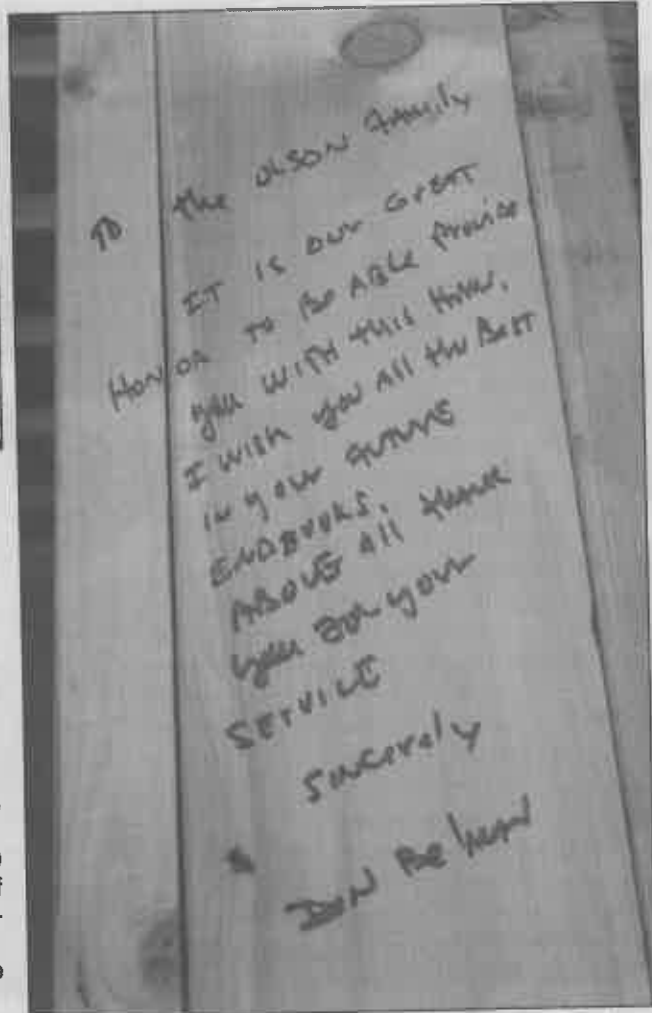 To the OLSON Family
IT IS our GREAT
HONOR TO Be ABLe Provide
you WITH this Home.
I WISH you All the BeST
in your FUTURE
ENDEVORS.
ABOVE All thank
you For your
SERVICE
Sincerely
DON